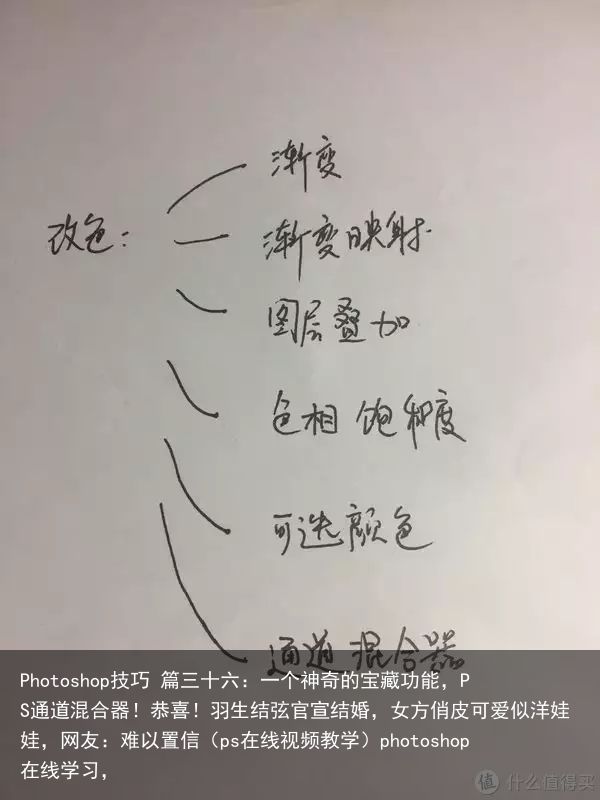 渐变
改色：
渐变映射
图层叠加
色相 饱和度
可选颜色
通道混合器
Photoshop技巧 篇三十六：一个神奇的宝藏功能，P
S通道混合器！恭喜！羽生结弦官宣结婚，女方俏皮可爱似洋娃
娃，网友：难以置信（ps在线视频教学）photoshop
在线学习，
值 什么值得买